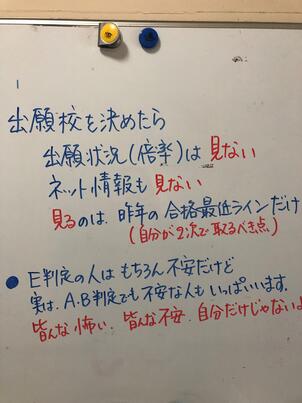 出願校を決めたら
出願状況(倍率)は 見ない
ネット情報も 見ない
見るのは、昨年の合格最低ラインだけ
(自分が2次で取るべき点)
● E判定の人は もちろん不安だけど
実は、A.B判定でも不安な人も いっぱいいます。
皆んな怖い、皆んな不安、自分だけじゃないよ